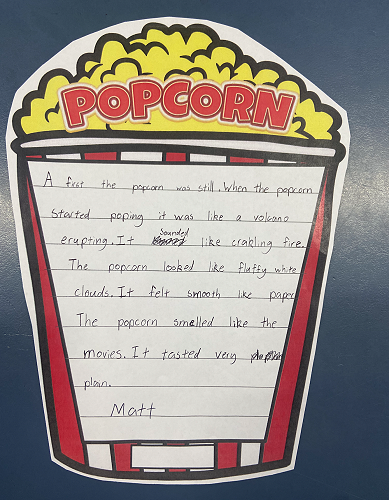 POPCORN
A first the popcorn was still. When the popcorn
started poping it was like a volcano
erupting. It sounded like crakling fire.
The popcorn looked like fluffy white
clouds. It felt smooth like paper
The popcorn smelled like the
movies. It tasted very
plain.
Matt